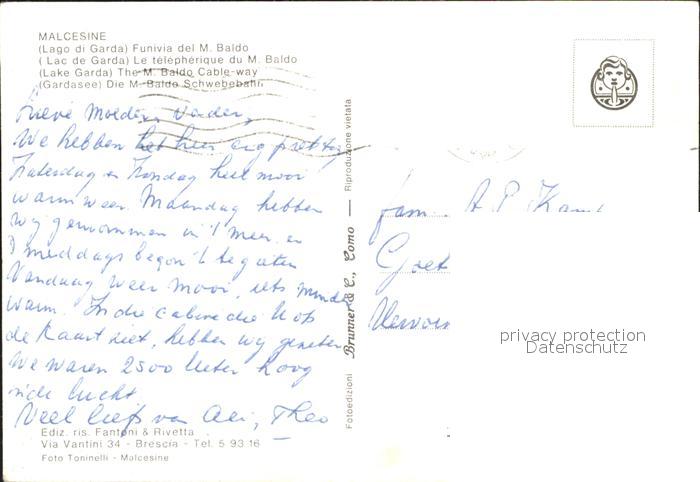 MALCESINE
(Lago di Garda) Funivia del M. Baldo
( Lac de Garda) Le téléphérique du M. Baldo
(Lake Garda) The M. Baldo Cable-way
(Gardasee) Die M. Baldo Schwebebahn
Lieve Moeder, Vader,
We hebben het hier erg prettig
Zaterdag en Zondag heel mooi
warm weer. Maandag hebben
wij gezwommen in 't meer en
's middags begon 't te gieten
Vandaag weer mooi, iets minder
warm. In die cabine die U op
de kaart ziet, hebben wij gezeten
We waren 2500 Meter hoog
in de lucht
Veel liefs van Theo
Ediz. ris. Fantoni & Rivetta
Via Vantini 34 - Brescia - Tel. 5 93 16
Foto Toninelli - Malcesine
Fotoedizioni Brunner & C., Como — Riproduzione vietata
fam. A. P.
privacy protection
Datenschutz